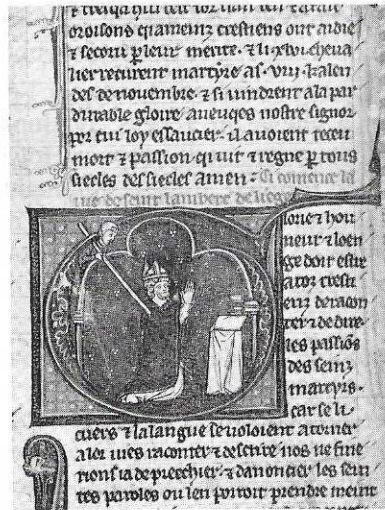 croisons quameinz crestiens ont aidie
⁊ secoru p leur merite. ⁊ li xviicheua
lier recurent martyre as .viij. kalen
des de nouembre. ⁊ si uindrent a la par
durable gloire auenques nostre signor
por cui loy essaucier. il auoient receu
mort ⁊ passion. qui uit ⁊ regne p tous
siecles des siecles amen. Ci comence la
uie de seint lambert de liege
lorie ⁊ hon
neur ⁊ loen
ge doit estre
a toz cresti
enz de racon
ter ⁊ de dire
les passiōs
des seinz
martyrs.
car se li
cuers ⁊ la langue se uoloient atorner
a lor uies raconter ⁊ descrire nos ne fine
rions ia de preechier ⁊ danoncier les sein
tes paroles ou len porroit prendre meint